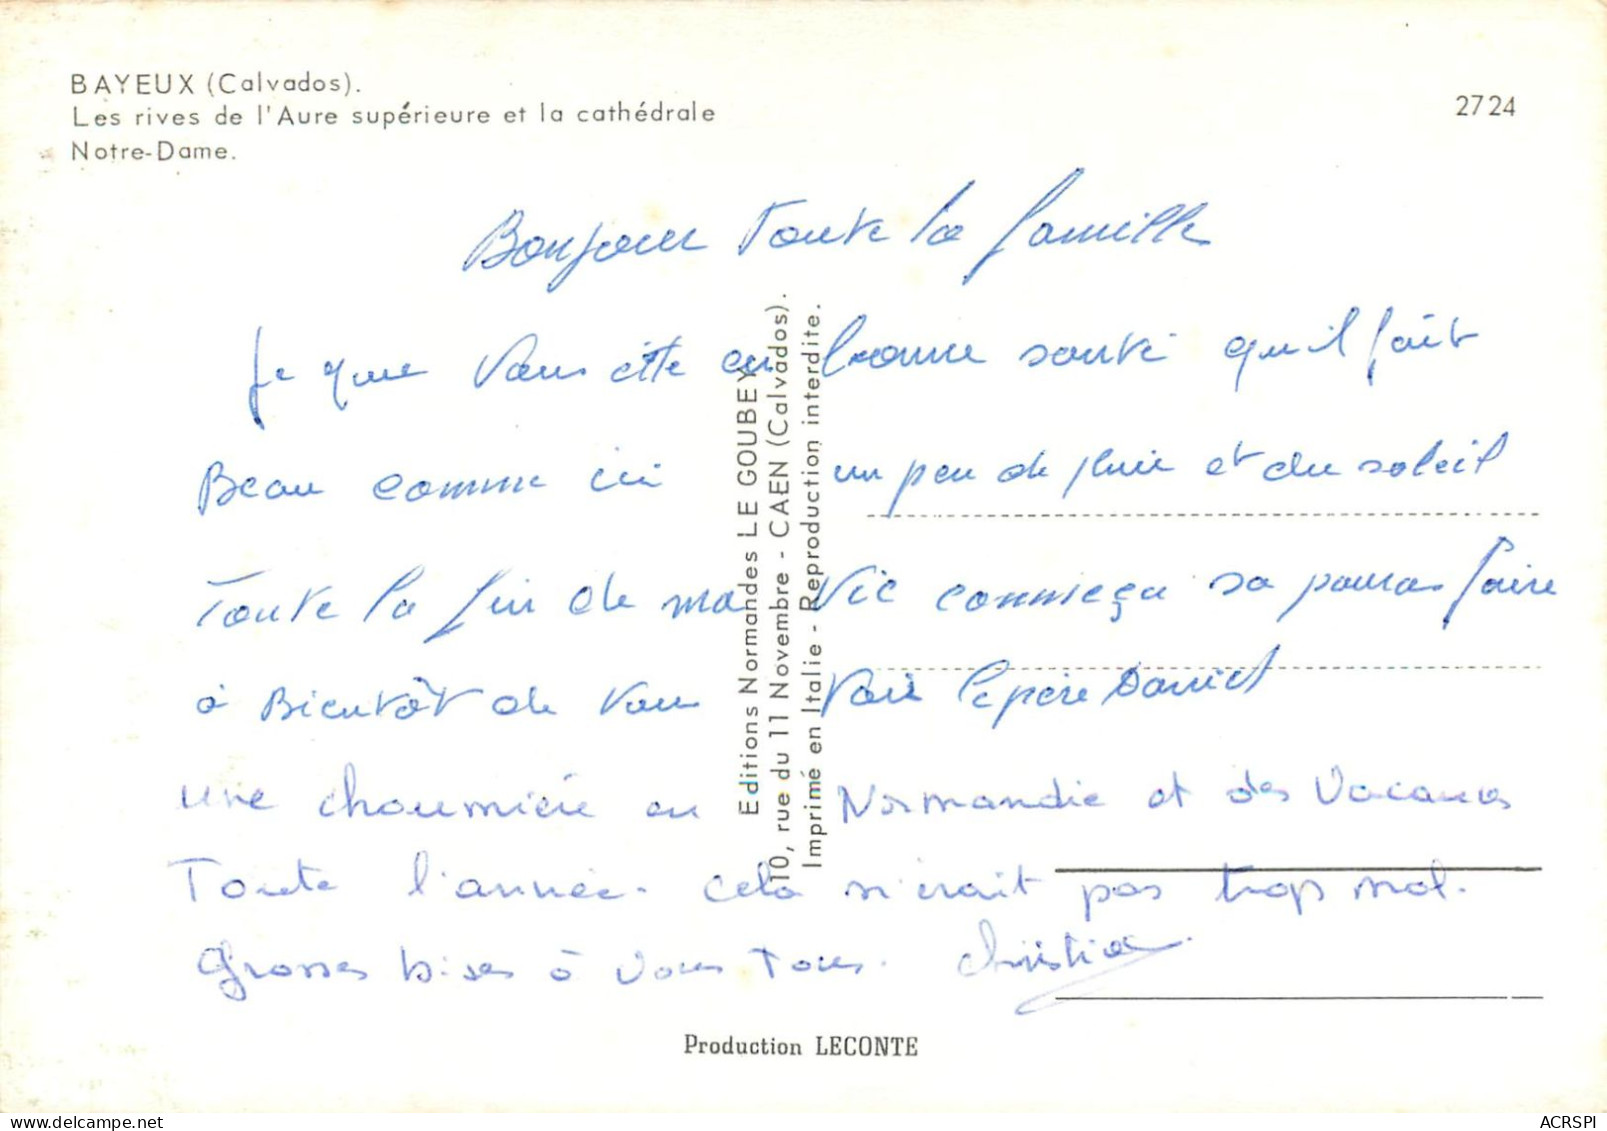 BAYEUX (Calvados).
Les rives de l'Aure supérieure et la cathédrale
Notre-Dame.
2724
Bonjour Toute la famille
Je que Vous ête en bonne santé qu'il fait
Beau comme ici un peu de pluie et du soleil
Toute la fin de ma Vie commeçu sa pouras faire
à Bientôt de Vous Voir le père Daniel
une choumière en Normandie et des Vacances
Toute l'année. cela n'erait pas trop mal.
Grosses bises à Vous Tous. Christian
Editions Normandes LE GOUBEY
10, rue du 11 Novembre - CAEN (Calvados).
Imprimé en Italie - Reproduction interdite.
Production LECONTE
ACRSPI